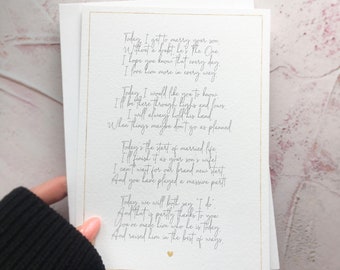 Today, I get to marry your son
Without a doubt, he's the One
I hope you know that every day
I love him more in every way

Today, I would like you to know
I'll be there through highs and lows
I will always hold his hand
When things maybe don't go as planned

Today's the start of married life
I'll finish it as your son's wife!
I can't wait for our brand new start
And you have played a massive part!

Today, we will both say 'I do'
And that is partly thanks to you
You've made him who he is today
And raised him in the best of ways